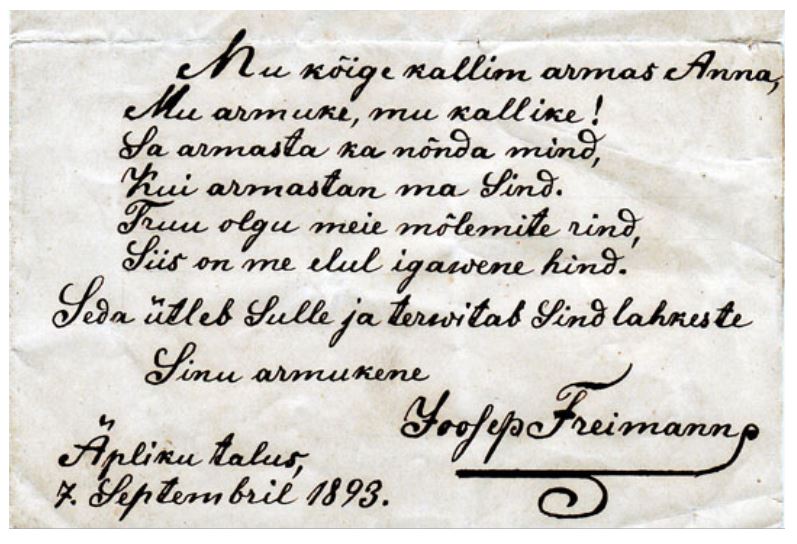 Mu kõige kallim armas Anna,
Mu armuke, mu kallike!
Sa armasta ka nõnda mind,
Kui armastan ma Sind.
Truu olgu meie mõlemite rind,
Siis on me elul igawene hind.
Seda ütleb Sulle ja terwitab Sind lahkeste
Sinu armukene
Joosep Freimann
Äpliku talus,
7. Septembril 1893.